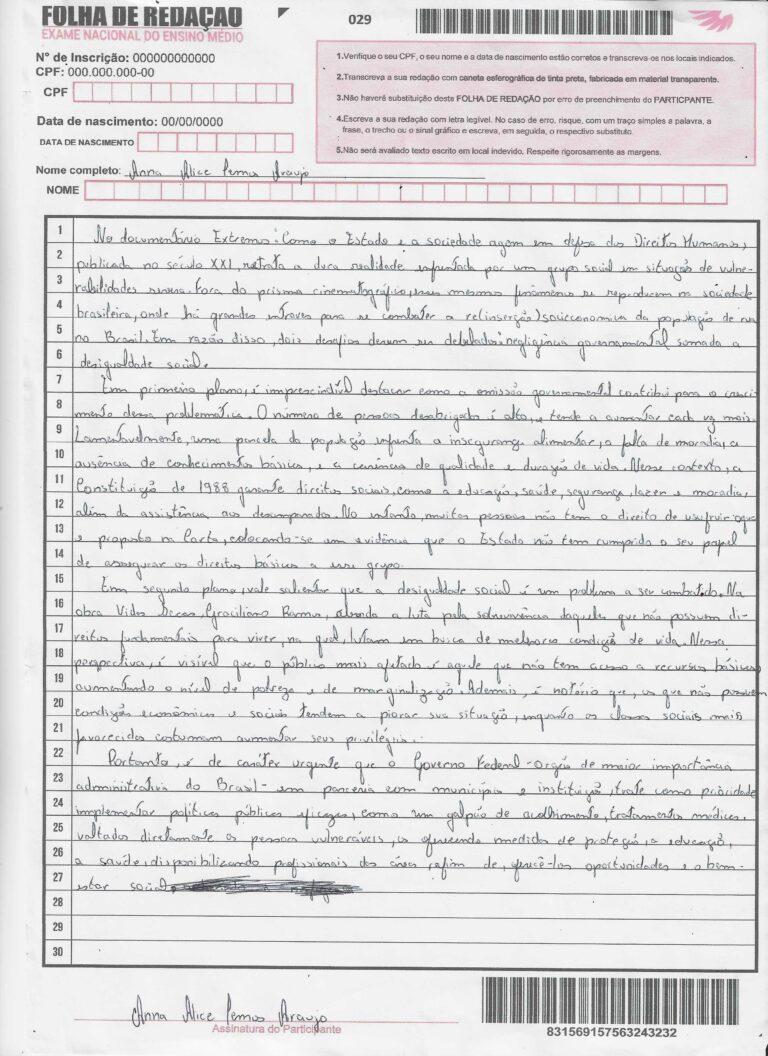 FOLHA DE REDAÇÃO
EXAME NACIONAL DO ENSINO MÉDIO
029
N° de Inscrição: 000000000000
CPF: 000.000.000-00
CPF
Data de nascimento: 00/00/0000
DATA DE NASCIMENTO
Nome completo: Anna Alice Araujo
NOME
1.Verifique o seu CPF, o seu nome e a data de nascimento estão corretos e transcreva-os nos locais indicados.
2.Transcreva a sua redação com caneta esferográfica de tinta preta, fabricada em material transparente.
3.Não haverá substituição desta FOLHA DE REDAÇÃO por erro de preenchimento do PARTICPANTE.
4.Escreva a sua redação com letra legível. No caso de erro, risque, com um traço simples a palavra, a
frase, o trecho ou o sinal gráfico e escreva, em seguida, o respectivo substituto.
5.Não será avaliado texto escrito em local indevido. Respeite rigorosamente as margens.
1 No documentário Extremos: Como o Estado e a sociedade agem em defesa dos Direitos Humanos,
2 publicada no século XXI, retrata a dura realidade enfrentada por um grupo social em situação de vulne-
3 rabilidades severa. Fora do prisma cinematográfico, esses mesmos fenômeno se reproduzem na sociedade
4 brasileira, onde há grandes entraves para se combater a re(inserção) socieconomica da população de rua
5 no Brasil. Em razão disso, dois desafios devem ser debelados: negligência governamental somada a
6 desigualdade social.
7 Em primeiro plano, é imprescindível destacar como a omissão governamental contribui para o cresci-
8 mento dessa problemática. O número de pessoas desabrigadas é alto, e tende a aumentar cada vez mais.
9 Lamentavelmente, uma parcela da população enfrenta a insegurança alimentar, a falta de moradia, a
10 ausência de conhecimentos básicos, e a carência de qualidade e duração de vida. Nesse contexto, a
11 Constituição de 1988 garante direitos sociais, como a educação, saúde, segurança, lazer e moradia,
12 além da assistência aos desamparados. No entanto, muitas pessoas não tem o direito de usufruir oque
13 é proposto na Carta, colocando-se em evidência que o Estado não tem cumprido o seu papel
14 de assegurar os direitos básicos a esse grupo.
15 Em segundo plano, vale salientar que a desigualdade social é um problema a ser combatido. Na
16 obra Vidas Secas, Graciliano Ramos, aborda a luta pela sobrevivência daqueles que não possuem di-
17 reitos fundamentais para viver, na qual, lutam em busca de melhores condição de vida. Nessa
18 perspectiva, é visível que o público mais afetado é aquele que não tem acesso a recursos básicos
19 aumentando o nível de pobreza e de marginalização. Ademais, é notório que, os que não possuem
20 condições econômicas e sociais tendem a piorar sua situação, enquanto as classes sociais mais
21 favorecidas costumam aumentar seus privilégios.
22 Portanto, é de caráter urgente que o Governo Federal - orgão de maior importância
23 administrativa do Brasil - em parceria com municípios e instituição, trate como prioridade
24 implementar políticas públicas eficazes, como um galpão de acolhimento, tratamentos médicos,
25 voltados diretamente as pessoas vulneráveis, os oferecendo medidas de proteção, a educação,
26 a saúde, disponibilizando profissionais das áreas, afim de, oferecê-los oportunidades e o bem-
27 estar social.
28
29
30
Anna Alice Araujo
Assinatura do Participante
831569157563243232